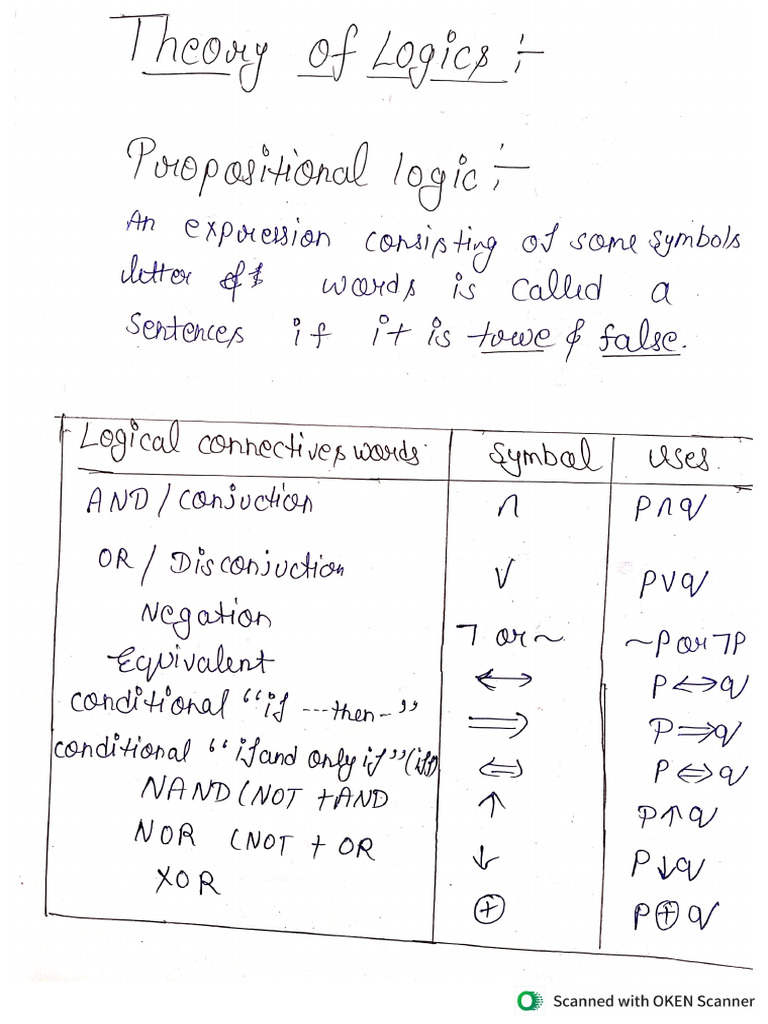 Theory of Logics :-
Propositional logic :-
An expression consisting of some symbols
letter & words is called a
Sentences if it is true & false.
Logical connectives words. Symbol Uses
AND / Conjuction ∧ P∧q
OR / Disconjuction ∨ P∨q
Negation ¬ or ~ ~P or ¬P
Equivalent ↔ P↔q
conditional "if ---then-" ⇒ P⇒q
conditional "if and only if" (iff) ⇔ P⇔q
NAND (NOT +AND ↑ P↑q
NOR (NOT + OR ↓ P↓q
XOR ⊕ P⊕q
Scanned with OKEN Scanner